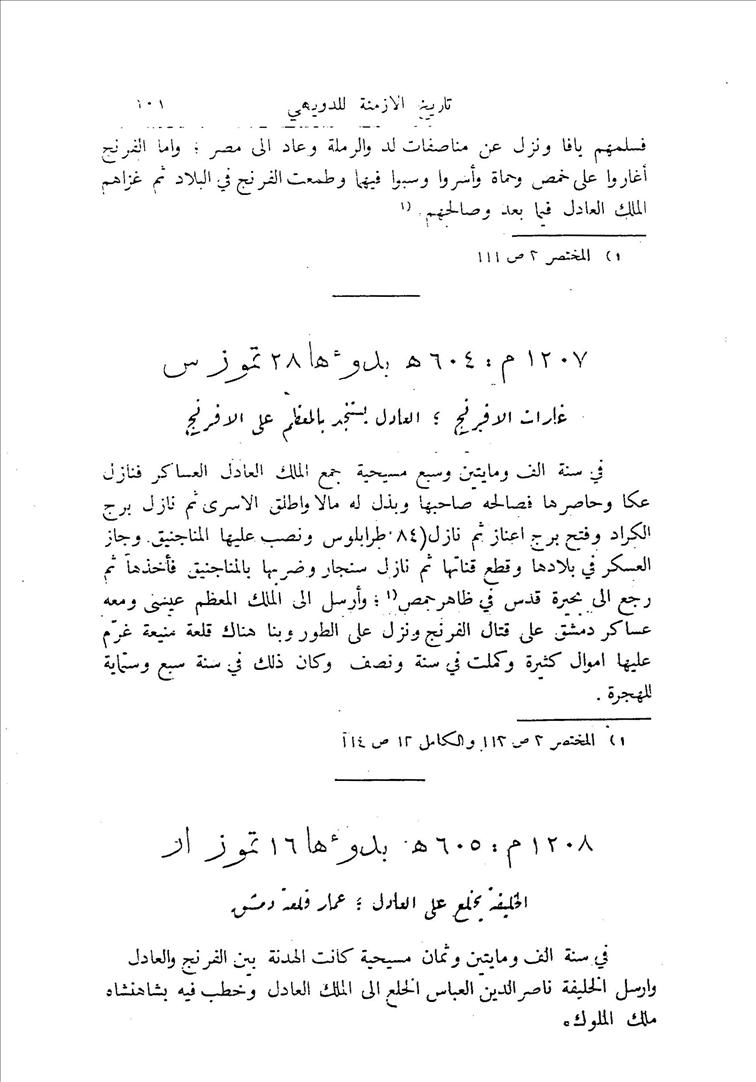 تاريخ الازمنة للدويهي ١٠١
فسلمهم يافا ونزل عن مناصفات لد والرملة وعاد الى مصر ؛ واما الفرنج
أغاروا على حمص وحماة وأسروا وسبوا فيها وطمعت الفرنج في البلاد ثم غزاهم
الملك العادل فيما بعد وصالحهم. ١)
١) المختصر ٢ ص ١١١
١٢٠٧ م : ٦٠٤ ه بدوءها ٢٨ تموز س
غارات الافرنج ؛ العادل يستنجد بالمعظم على الافرنج
في سنة الف ومايتين وسبع مسيحية جمع الملك العادل العساكر فنازل
عكا وحاصرها فصالحه صاحبها وبذل له مالا واطلق الاسرى ثم نازل برج
الكراد وفتح برج اعناز ثم نازل (٨٤ طرابلوس ونصب عليها المناجنيق وجاز
العسكر في بلادها وقطع قناتها ثم نازل سنجار وضربها بالمناجنيق فأخذها ثم
رجع الى بحيرة قدس في ظاهر حمص ١) ؛ وأرسل الى الملك المعظم عيسى ومعه
عساكر دمشق على قتال الفرنج ونزل على الطور وبنا هناك قلعة منيعة غرّم
عليها اموال كثيرة وكملت في سنة ونصف وكان ذلك في سنة سبع وستماية
للهجرة .
١) المختصر ٢ ص ١١٢ والكامل ١٢ ص ١١٤
١٢٠٨ م : ٦٠٥ ه بدوءها ١٦ تموز ار
الخليفة يخلع على العادل ؛ عمار قلعة دمشق
في سنة الف ومايتين وثمان مسيحية كانت الهدنة بين الفرنج والعادل
وارسل الخليفة ناصر الدين العباس الخلع الى الملك العادل وخطب فيه بشاهنشاه
ملك الملوك.